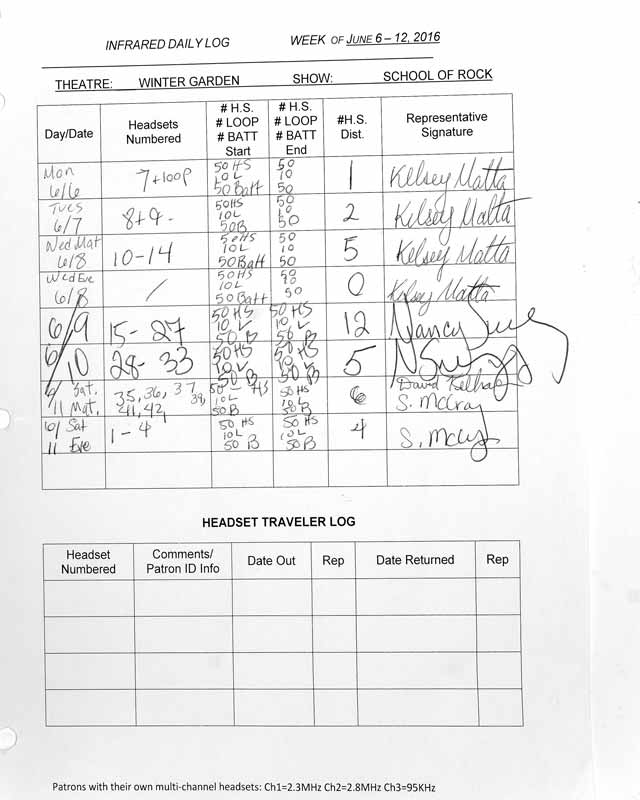 INFRARED DAILY LOG WEEK OF JUNE 6 – 12, 2016
THEATRE: WINTER GARDEN SHOW: SCHOOL OF ROCK
Day/Date Headsets Numbered # H.S. # LOOP # BATT Start # H.S. # LOOP # BATT End #H.S. Dist. Representative Signature
Mon 6/6 7+loop 50 HS 10 L 50 Batt 50 10 50 1 Kelsey Matta
Tues 6/7 8+9 - 50HS 10L 50B 50 10 50 2 Kelsey Matta
Wed Mat 6/8 10-14 50HS 10 L 50 Batt 50 10 50 5 Kelsey Matta
Wed Eve 6/8 / 50HS 10L 50 Batt 50 10 50 0 Kelsey Matta
6/9 15-27 50 HS 10 L 50 B 50 HS 10 L 50 B 12 Nancy
6/10 28-33 50HS 10 L 50 B 50HS 10 L 50 B 5
6/11 Sat. Mat. 35, 36, 37, 39, 41, 42, 50 - HS 10L 50B 50HS 10L 50B 6 David S. McCray
6/11 Sat Eve 1-4 50 HS 10L 50 B 50 HS 10L 50 B 4
HEADSET TRAVELER LOG
Headset Numbered Comments/ Patron ID Info Date Out Rep Date Returned Rep
Patrons with their own multi-channel headsets: Ch1=2.3MHz Ch2=2.8MHz Ch3=95KHz